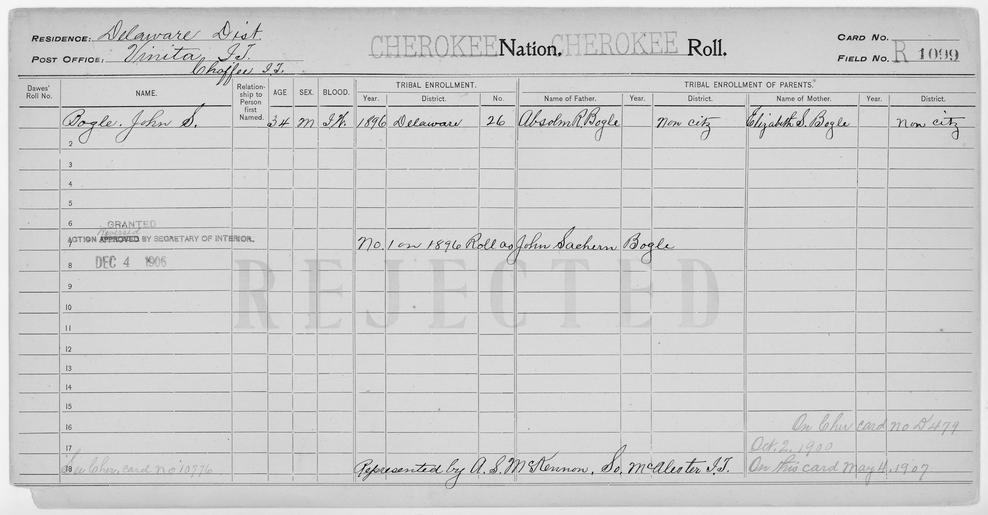 RESIDENCE: Delaware Dist
POST OFFICE: Vinita I.T.
Chaffee I.T.
CHEROKEE Nation. CHEROKEE Roll.
CARD NO.
FIELD NO. R 1099
Dawes' Roll No. NAME. Relationship to Person first Named. AGE SEX. BLOOD. TRIBAL ENROLLMENT. TRIBAL ENROLLMENT OF PARENTS.
Year. District. No. Name of Father. Year. District. Name of Mother. Year. District.
Bogle. John S. 34 M I.W. 1896 Delaware 26 Absolm R. Bogle Non citz Elizabeth S. Bogle Non citz
2
3
4
5
6 GRANTED
Reversed
7 ACTION APPROVED BY SECRETARY OF INTERIOR. No. 1 on 1896 Roll as John Sachern Bogle
8 DEC 4 1906
REJECTED
9
10
11
12
13
14
15
16 On Cher card no D 479
17 Oct. 2, 1900
18 See Cher. card no 10776 Represented by A. S. McKennon, So. McAlester I.T. On this card May 4, 1907